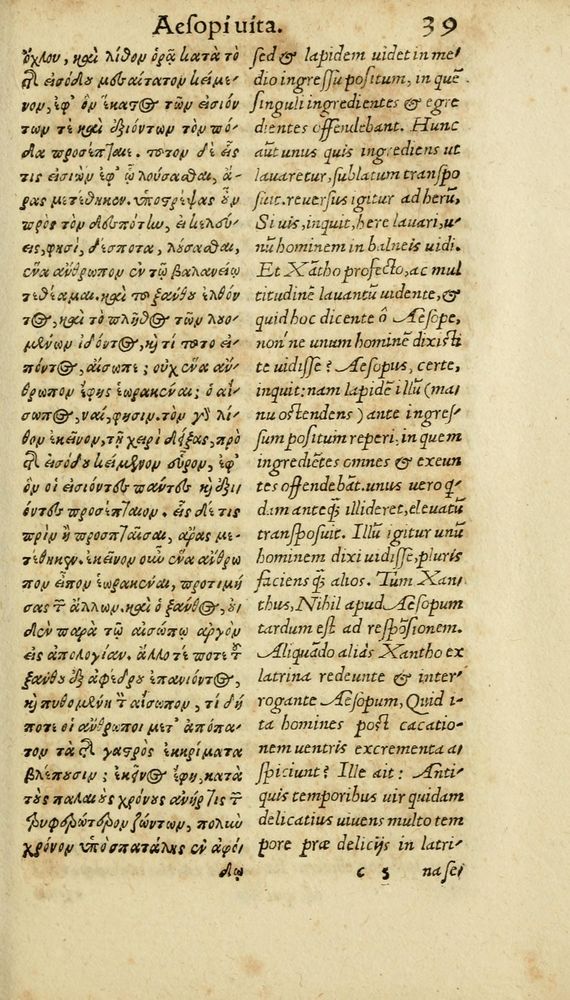 Aesopi uita. 39
ὄχλου, καὶ λίθον ὁρᾷ κατὰ τὸ
τῆς εἰσόδου μεσαίτατον κείμε-
νον, ἐφ' ὃν ἕκαστος τῶν εἰσιόν
των τε καὶ ἐξιόντων τὸν πό-
δα προσέπταιε. τοῦτον δὲ εἷς
τις εἰσιὼν ἐφ' ᾧ λούσασθαι, ἄ-
ρας μετέθηκεν. ὑποστρέψας οὖν
πρὸς τὸν δεσπότην, εἰ κελεύ-
εις, φησὶ, δέσποτα, λούσασθαι,
ἕνα ἄνθρωπον ἐν τῷ βαλανείῳ
τεθέαμαι. καὶ τοῦ ξάνθου ἐλθόν
τος, καὶ τὸ πλῆθος τῶν λουο-
μένων ἰδόντος, καὶ τί τοῦτο εἰ-
πόντος, αἴσωπε; οὐχ ἕνα ἄν-
θρωπον ἔφης ἑωρακέναι; ὁ αἴ-
σωπος, ναί, φησιν. τὸν γὰρ λί-
θον ἐκεῖνον, τῇ χειρὶ δείξας, πρὸ
τῆς εἰσόδου κείμενον εὗρον, ἐφ'
ὃν οἱ εἰσιόντες πάντες καὶ ἐξι-
όντες προσέπταιον. εἷς δέ τις
πρὶν ἢ προσπταῖσαι, ἄρας με-
τέθηκεν. ἐκεῖνον οὖν ἕνα ἄνθρω
πον εἶπον ἑωρακέναι, προτιμή
σας τῶν ἄλλων. καὶ ὁ ξάνθος, οὐ
δὲν παρὰ τῷ αἰσώπῳ ἀργὸν
εἰς ἀπολογίαν. ἄλλοτέ ποτε τοῦ
ξάνθου ἐξ ἀφέδρου ἐπανιόντος,
καὶ πυθομένου τὸν αἴσωπον, τί δή
ποτε οἱ ἄνθρωποι μετ' ἀπόπα-
τον τὰ τῆς γαστρὸς ἐκκρίματα
βλέπουσιν; ἐκεῖνος ἔφη, κατὰ
τοὺς παλαιοὺς χρόνους ἀνήρ τις τῶν
τρυφερώτερον ζώντων, πολὺν
χρόνον ὑπὸ σπατάλης ἐν ἀφέ-
δῳ
sed & lapidem uidet in me/
dio ingressu positum, in quē
singuli ingredientes & egre
dientes offendebant. Hunc
aūt unus quis ingrediens ut
lauaretur, sublatum transpo
suit. reuersus igitur ad herū,
Si uis, inquit, here lauari, u/
nū hominem in balneis uidi.
Et Xātho profecto, ac mul
titudinē lauantū uidente, &
quid hoc dicente ô Aesope,
non'ne unum hominē dixisti
te uidisse? Aesopus, certe,
inquit: nam lapidē illū (ma/
nu ostendens) ante ingres/
sum positum reperi, in quem
ingrediētes omnes & exeun
tes offendebāt. unus uero q/
dam anteq̄ illideret, eleuatū
transposuit. Illū igitur unū
hominem dixi uidisse, pluris
faciens q̄ alios. Tūm Xan/
thus, Nihil apud Aesopum
tardum est ad respōsionem.
Aliquādo aliàs Xantho ex
latrina redeunte & inter/
rogante Aesopum, Quid i-
ta homines post cacatio-
nem uentris excrementa a/
spiciunt? Ille ait: Anti/
quis temporibus uir quidam
delicatius uiuens multo tem
pore præ delicijs in latri/
c 5 na se/